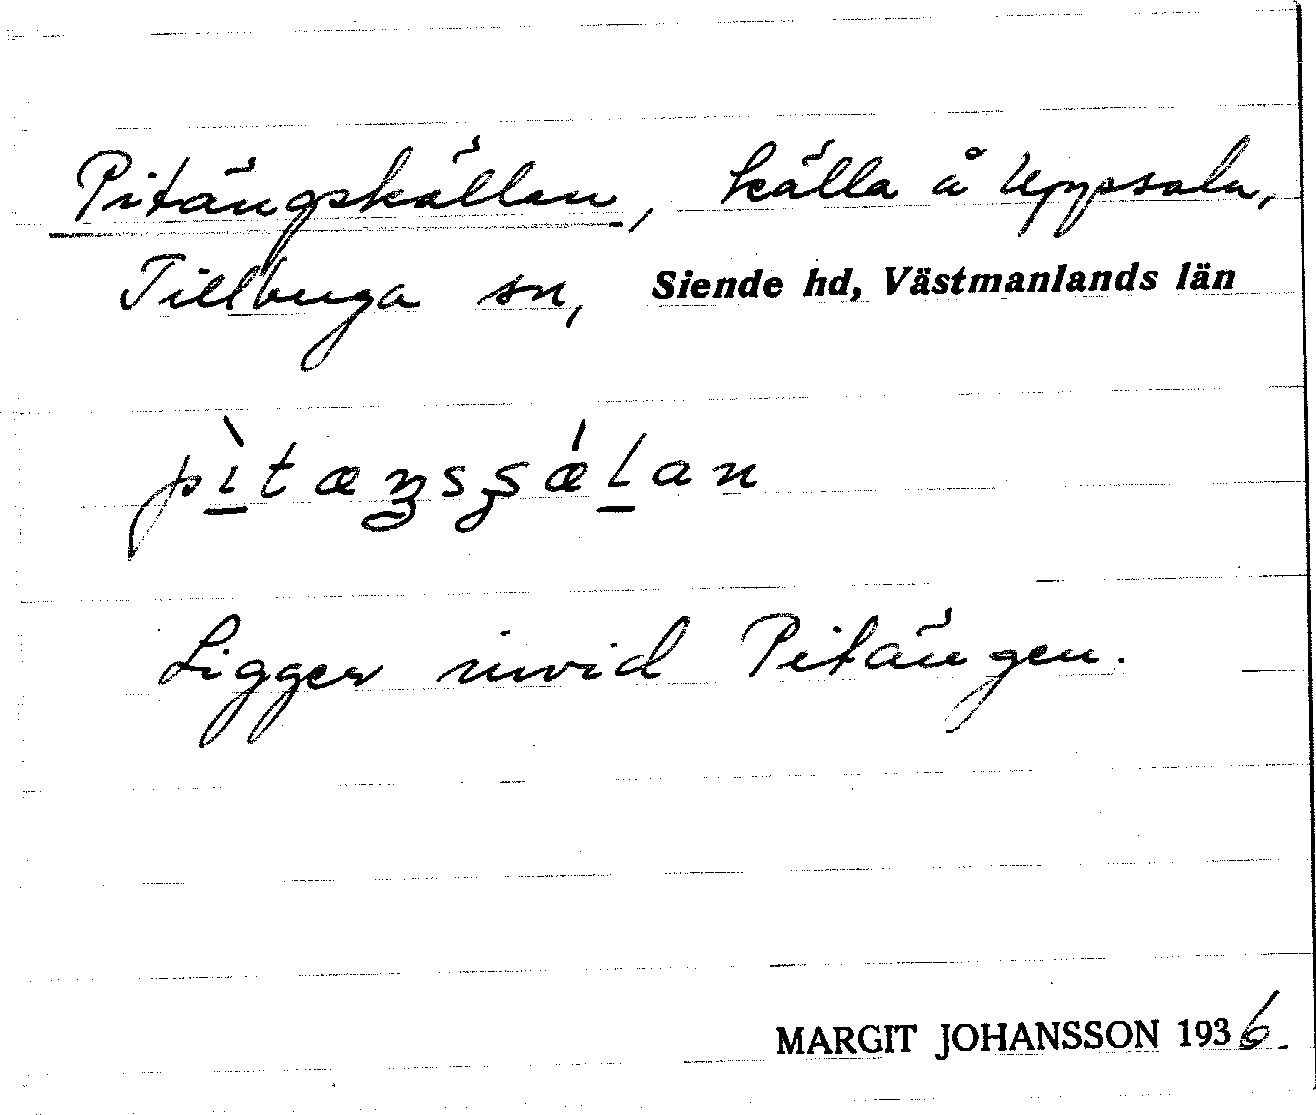 Pitängskällan, källa å Uppsala,
Tillbuga sn, Siende hd, Västmanlands län
pìtæŋsʂǽlan
Ligger invid Pitängen.
MARGIT JOHANSSON 1936.